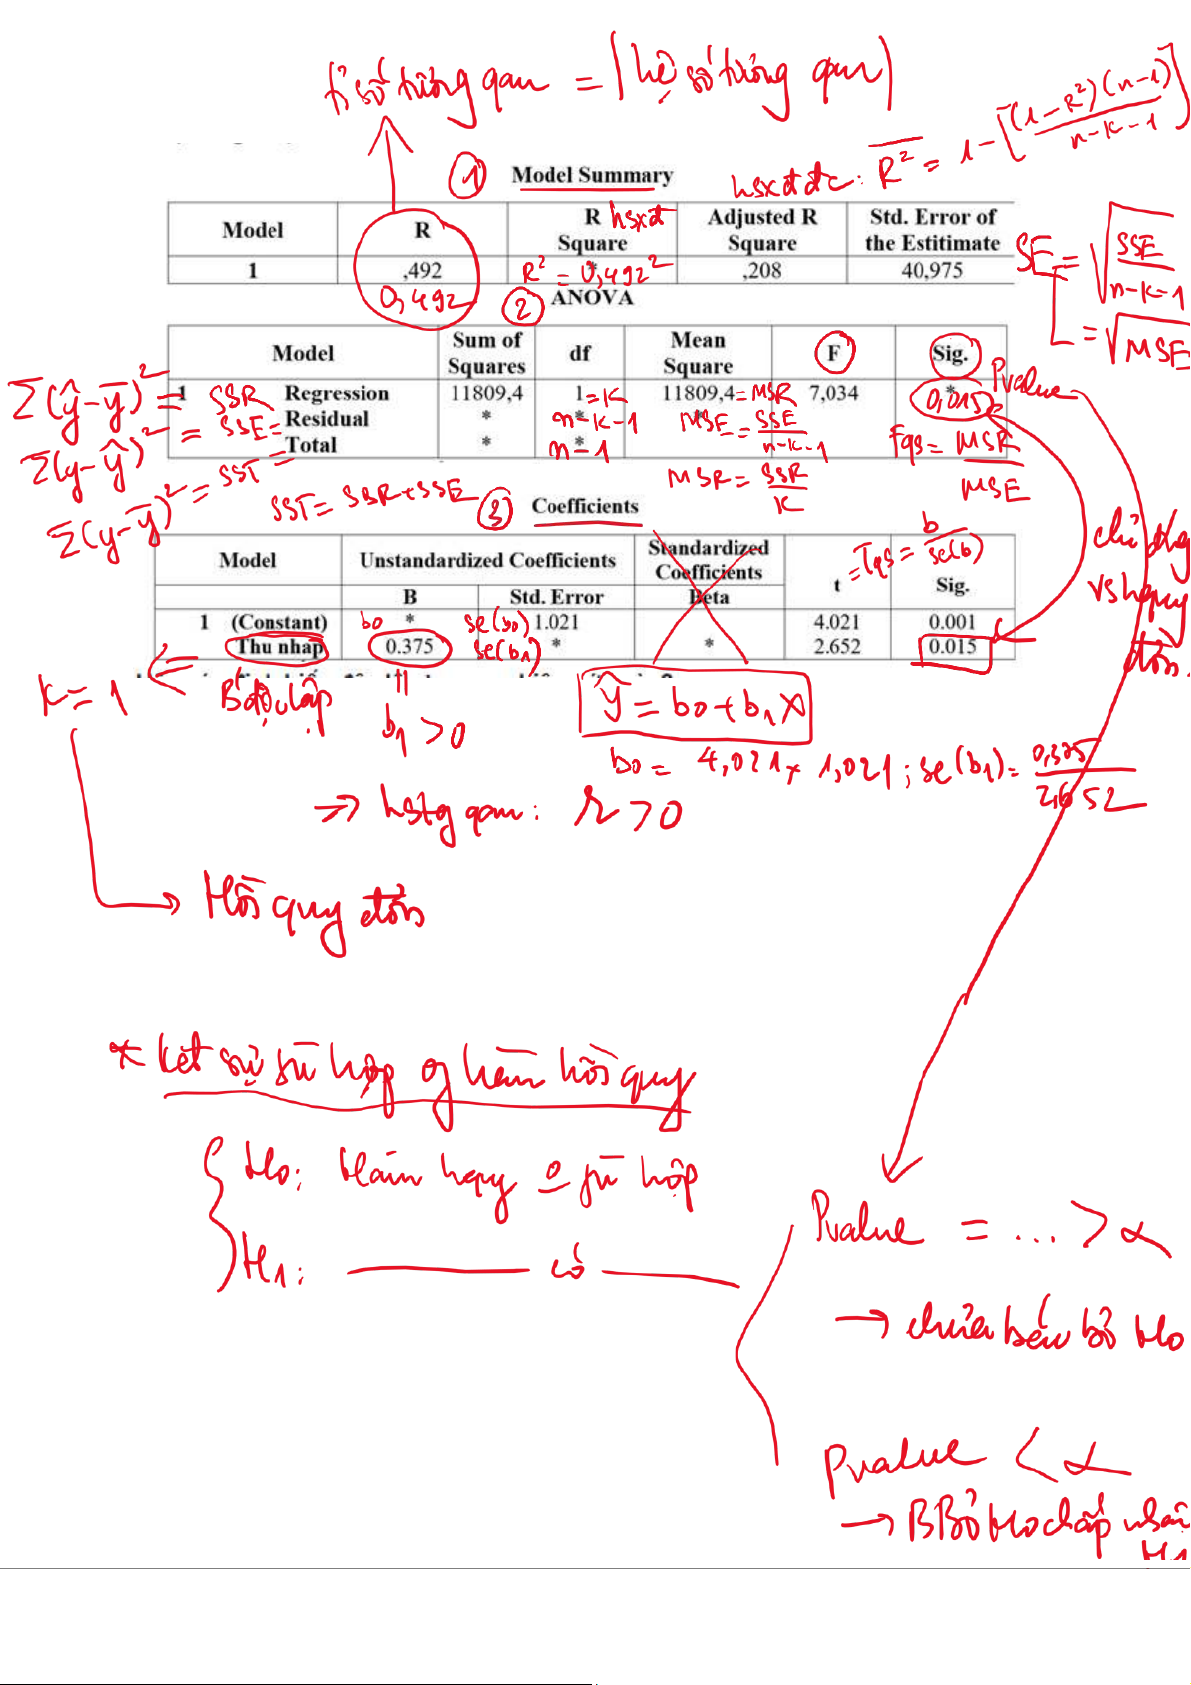 tỉ số tương quan = |hệ số tương quan|
hsxđ đc: R² = 1 - [(1-R²)(n-1) / n-k-1]
① Model Summary
Model R R Square hsxđ Adjusted R Square Std. Error of the Estitimate
1 ,492 R² = 0,492² ,208 40,975
0,492
SE = √(SSE / n-k-1)
= √MSE
② ANOVA
Model Sum of Squares df Mean Square F Sig.
Pvalue
Σ(ŷ-y̅)² = SSR
1 Regression 11809,4 1 = k 11809,4 = MSR 7,034 *
0,015
Σ(y-ŷ)² = SSE =
Residual * * n-k-1 MSE = SSE / n-k-1
Total * * n-1
Fqs = MSR / MSE
Σ(y-y̅)² = SST =
SST = SSR + SSE
MSR = SSR / K
③ Coefficients
Model Unstandardized Coefficients Standardized Coefficients t Sig.
= Tqs = b / se(b)
B Std. Error Beta
1 (Constant) b0 * se(b0) 1.021 4.021 0.001
Thu nhap 0.375 se(b1) * * 2.652 0.015
chỉ đúg
vs hquy
đơn.
k = 1 ⇐ B độc lập
b1 > 0
ŷ = b0 + b1X
b0 = 4,021 × 1,021 ; se(b1) = 0,375 / 2,652
⇒ hstg quan: r > 0
→ Hồi quy đơn
* Kết sự fù hợp of hàm hồi quy
H0: Hàm hquy 0 fù hợp
H1: có
Pvalue = ... > α
→ chưa bác bỏ H0
Pvalue < α
→ BBỏ H0 chấp nhận
H1